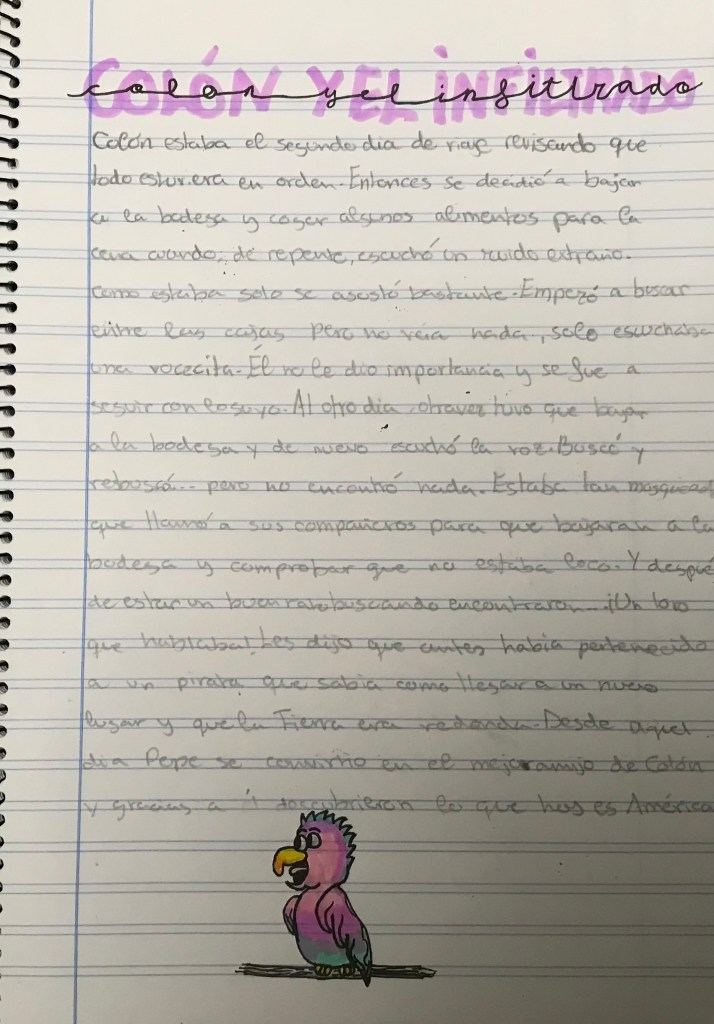 COLÓN Y EL INFILTRADO
colon y el infiltrado
Colón estaba el segundo dia de viaje revisando que
todo estuviera en orden. Entonces se decidió a bajar
a la bodega y coger algunos alimentos para la
cena cuando, de repente, escuchó un ruido extraño.
Como estaba solo se asustó bastante. Empezó a buscar
entre las cajas pero no veia nada, solo escuchaba
una vocecita. Él no le dio importancia y se fue a
seguir con lo suyo. Al otro dia otra vez tuvo que bajar
a la bodega y de nuevo escuchó la voz. Buscó y
rebuscó... pero no encontró nada. Estaba tan mosquead
que llamó a sus compañeros para que bajaran a la
bodega y comprobar que no estaba loco. Y despué
de estar un buen rato buscando encontraron... ¡Un loro
que hablaba! Les dijo que antes había pertenecido
a un pirata que sabia como llegar a un nuevo
lugar y que la Tierra era redonda. Desde aquel
dia Pepe se convirtio en el mejor amijo de Colón
y gracias a él descubrieron lo que hoy es América